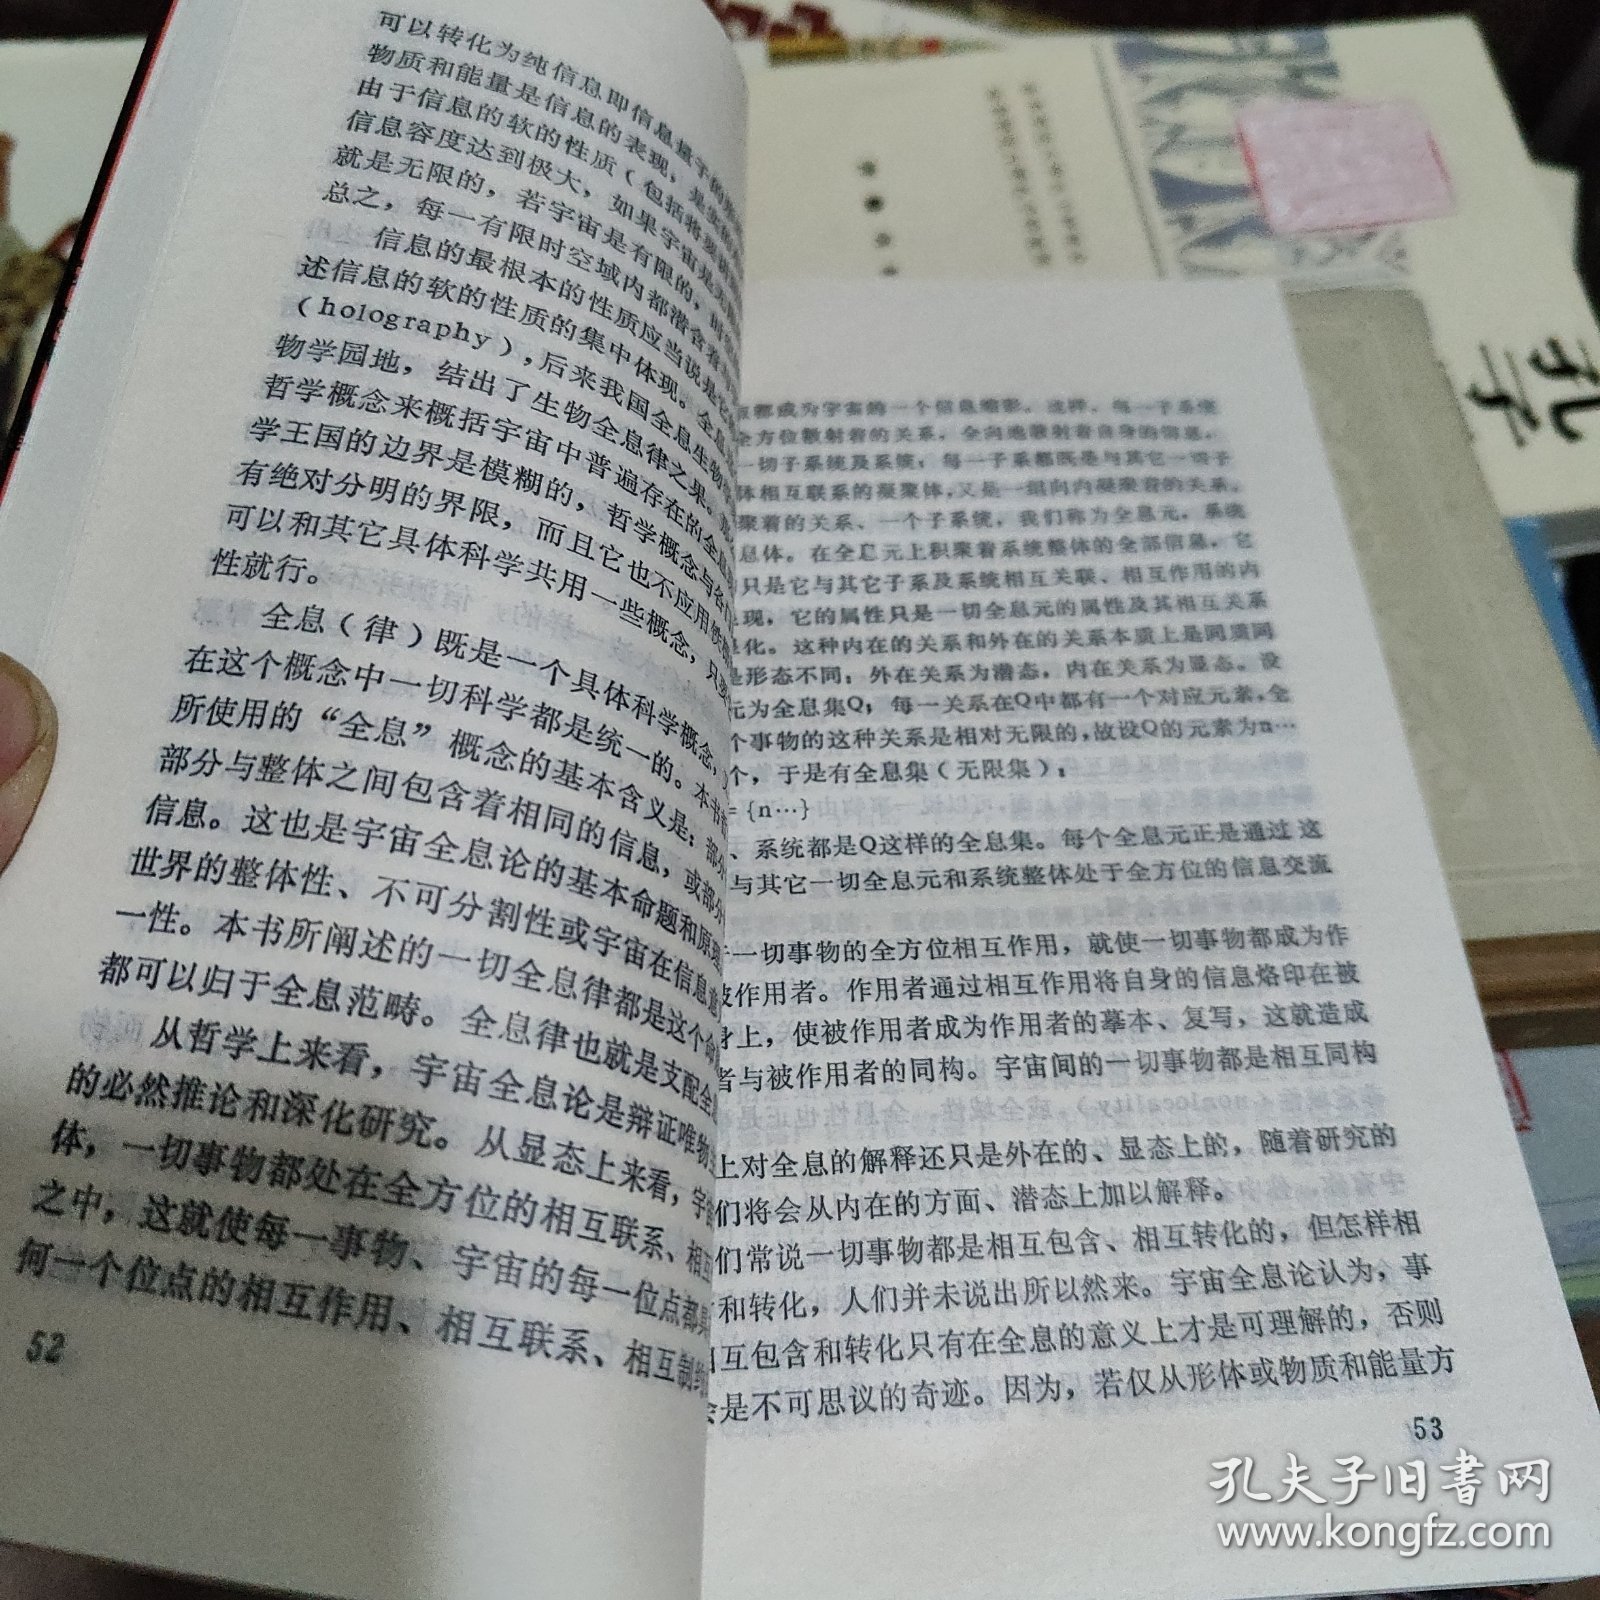 可以转化为纯信息即信息量子的
物质和能量是信息的表现，是
由于信息的软的性质（包括
信息容度达到极大，如果宇宙是无
就是无限的，若宇宙是有限的，
总之，每一有限时空域内都潜含着
信息的最根本的性质应当说是
述信息的软的性质的集中体现。全息
（holography），后来我国全息生物学
物学园地，结出了生物全息律之果。
哲学概念来概括宇宙中普遍存在的全息
学王国的边界是模糊的，哲学概念与各
有绝对分明的界限，而且它也不应用
可以和其它具体科学共用一些概念，只要
性就行。
全息（律）既是一个具体科学概念，
在这个概念中一切科学都是统一的。本书
所使用的“全息”概念的基本含义是：部分
部分与整体之间包含着相同的信息，或部分
信息。这也是宇宙全息论的基本命题和原理
世界的整体性、不可分割性或宇宙在信息
一性。本书所阐述的一切全息律都是这个命
都可以归于全息范畴。全息律也就是支配全
从哲学上来看，宇宙全息论是辩证唯物
的必然推论和深化研究。从显态上来看，宇宙
体，一切事物都处在全方位的相互联系、相互
之中，这就使每一事物、宇宙的每一位点都
何一个位点的相互作用、相互联系、相互制约
52
都成为宇宙的一个信息缩影。这样，每一子系统
全方位散射着的关系，全向地散射着自身的信息，
一切子系统及系统；每一子系都既是与其它一切子
体相互联系的凝聚体，又是一组向内凝聚着的关系。
聚着的关系、一个子系统，我们称为全息元，系统
息体。在全息元上积聚着系统整体的全部信息，它
只是它与其它子系及系统相互关联、相互作用的内
现，它的属性只是一切全息元的属性及其相互关系
化。这种内在的关系和外在的关系本质上是同质同
是形态不同；外在关系为潜态，内在关系为显态。没
元为全息集Q；每一关系在Q中都有一个对应元素，全
个事物的这种关系是相对无限的，故设Q的元素为n…
个，于是有全息集（无限集）：
={n…}
、系统都是Q这样的全息集。每个全息元正是通过这
与其它一切全息元和系统整体处于全方位的信息交流
一切事物的全方位相互作用，就使一切事物都成为作
被作用者。作用者通过相互作用将自身的信息烙印在被
身上，使被作用者成为作用者的摹本、复写，这就造成
者与被作用者的同构。宇宙间的一切事物都是相互同构
上对全息的解释还只是外在的、显态上的，随着研究的
们将会从内在的方面、潜态上加以解释。
们常说一切事物都是相互包含、相互转化的，但怎样相
和转化，人们并未说出所以然来。宇宙全息论认为，事
互包含和转化只有在全息的意义上才是可理解的，否则
会是不可思议的奇迹。因为，若仅从形体或物质和能量方
53
孔夫子旧书网
www.kongfz.com